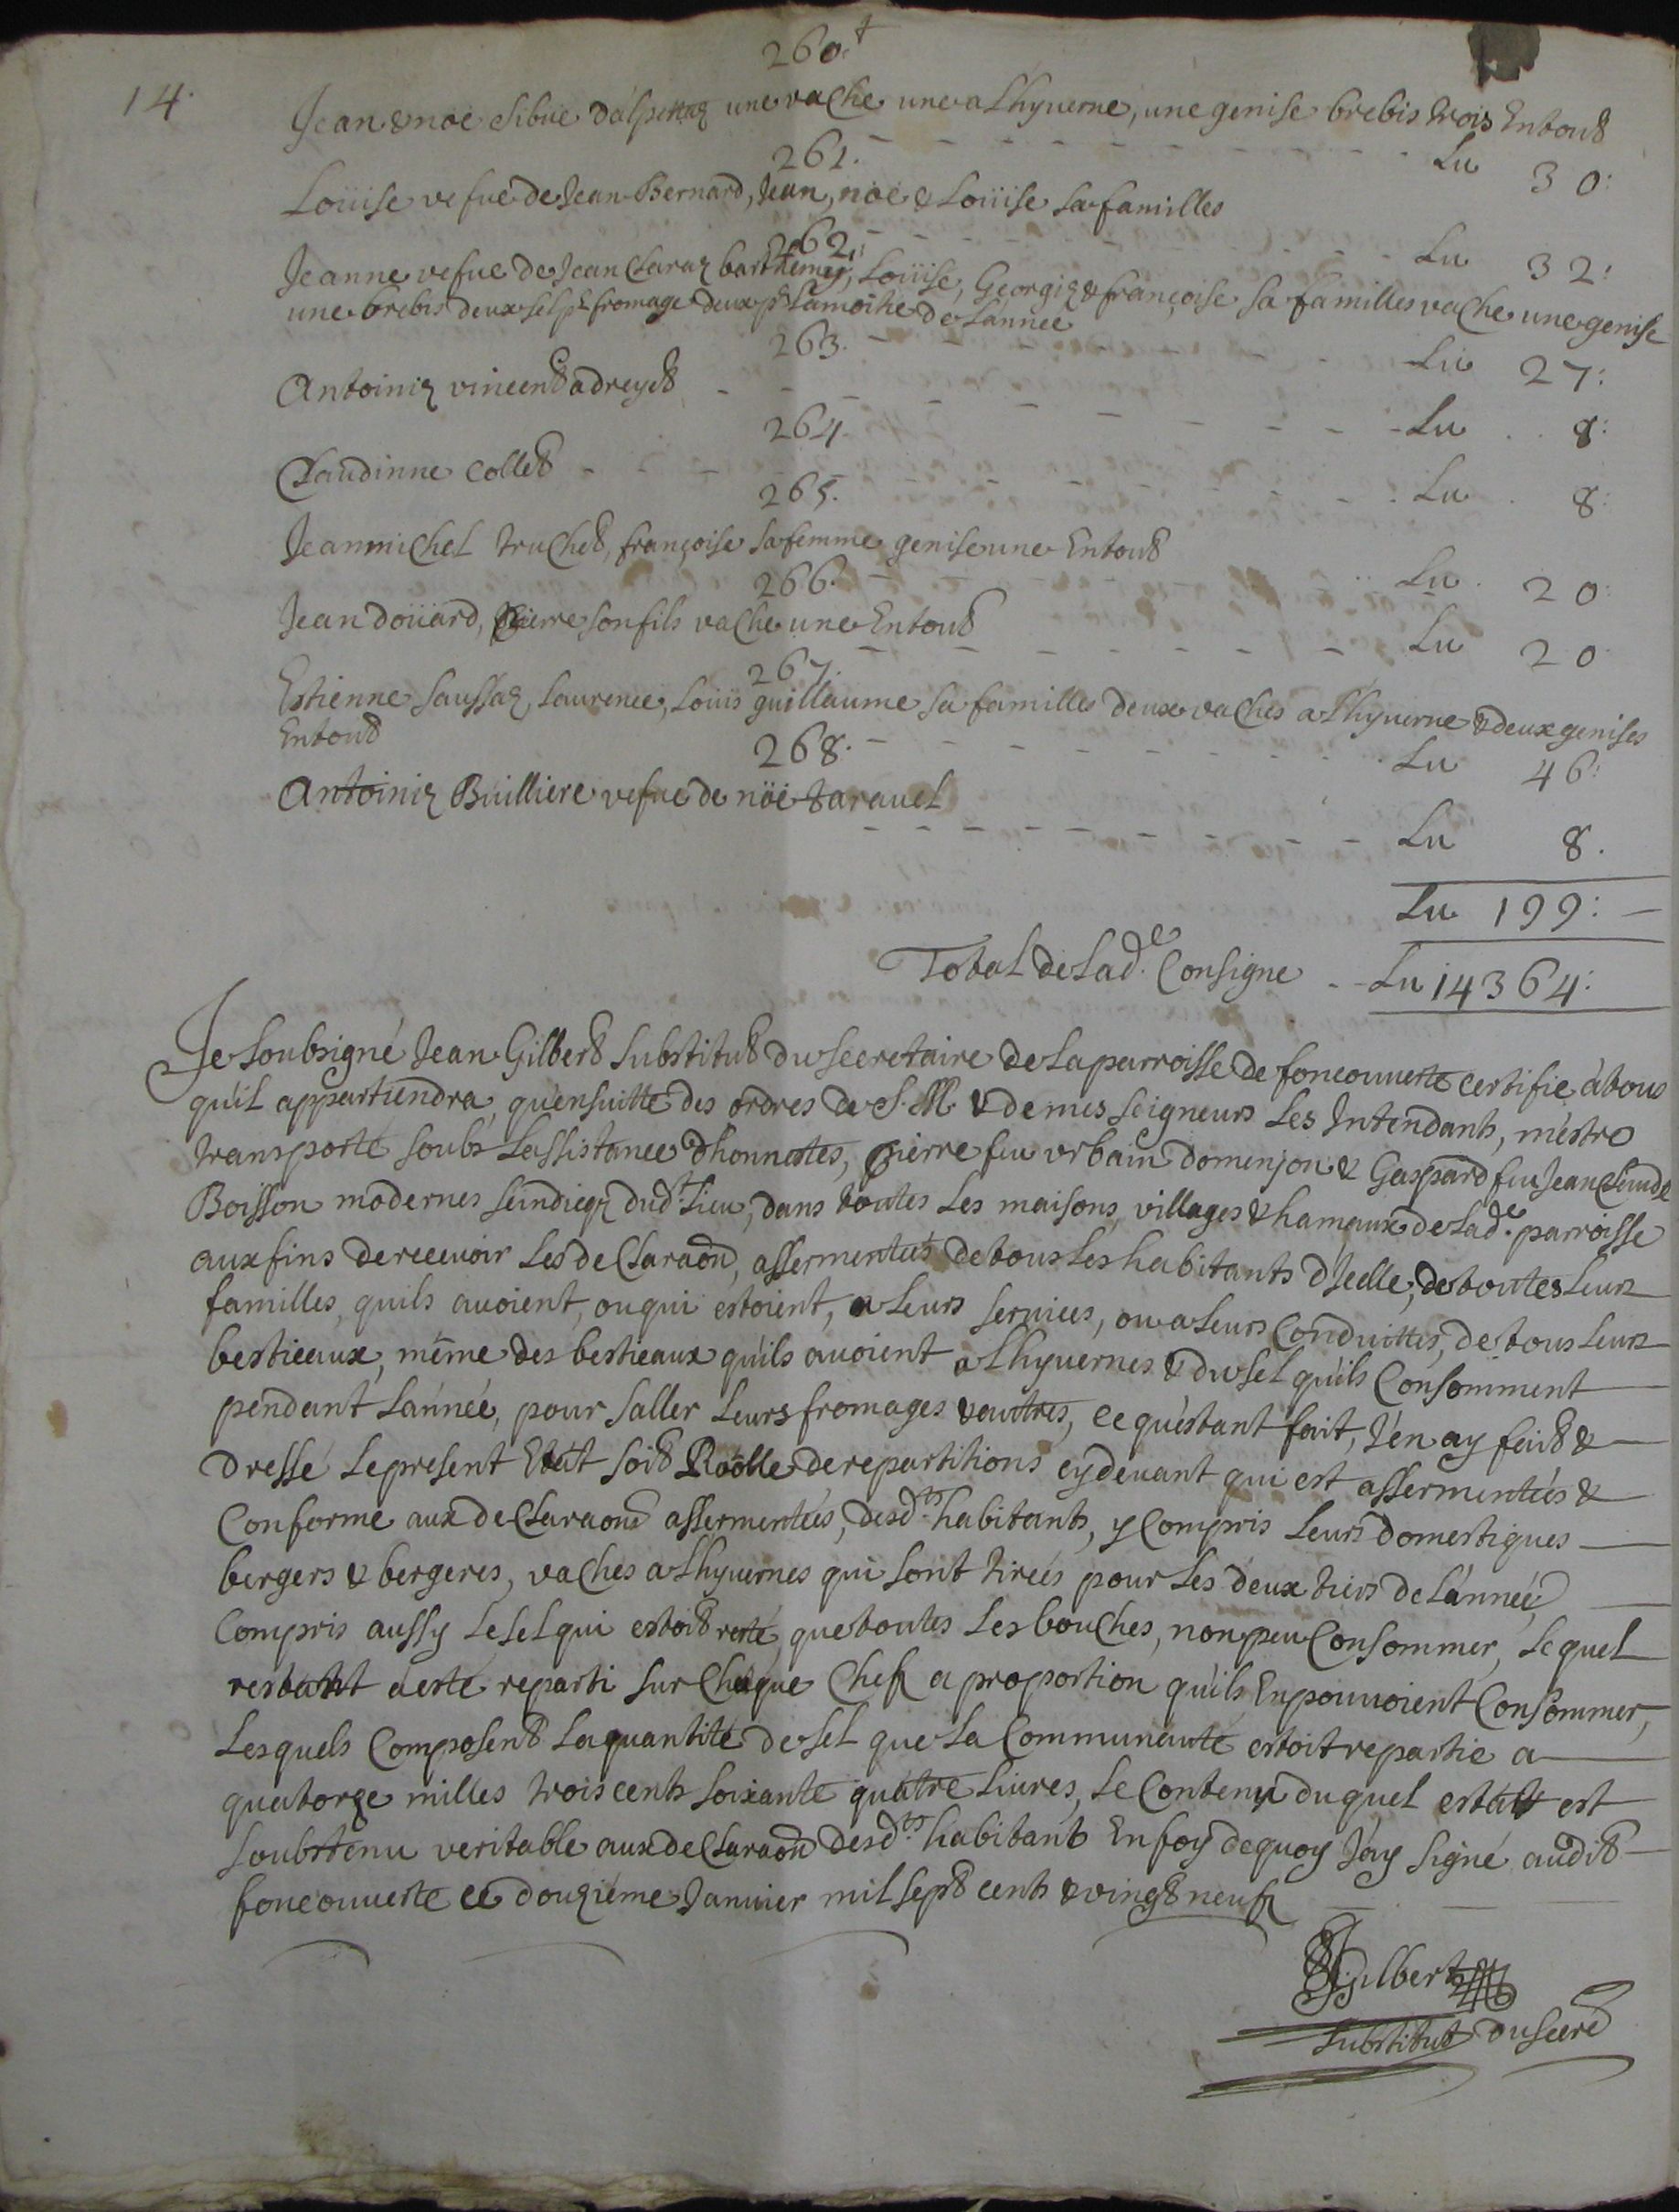 260.
14.
Jean & noë sibüe dalpettaz une vache une a Lhyuerne, une genise brebis trois Entout
Lu 30:
261.
Loüise vefue de Jean Bernard, Jean, noë & Loüise sa familles
Lu 32:
262.
Jeanne vefue de Jean Claraz barthemy, Loüise, Georgiz & françoise sa familles vache une genise
une brebis deux sel pr fromage deux pr Lamoitie de Lannee
Lu 27:
263.
Antoiniz vincent adreyt
Lu 8:
264.
Claudinne Collet
Lu 8:
265.
Jean michel truchet, françoise sa femme genise une Entout
Lu 20:
266.
Jean doüard, Pierre son fils vache une Entout
Lu 20
267.
Estienne Saussaz, Laurence, Louïs guillaume sa familles deux vaches a Lhyuerne & deux genises
Entout
Lu 46:
268.
Antoiniz Buillière vefue de noë taravel
Lu 8.
Lu 199:
Total de Lade. Consigne Lu 14364:
Je soubsigné Jean Gilbert substitut du secretaire de la parroisse de foncouuerte certifie à tous
qu'il appartiendra, qu'ensuitte des ordres de S. M. & de mes seigneurs Les Intendants, m'estre
transporté soubs Lassistance dhonnestes, pierre feu vrbain domenjon & Gaspard feu Jean Claude
Boisson modernes scindicqz dudt. Lieu, dans toutes Les maisons, villages & hamaux de Lade. parroisse
aux fins de recevoir Les declaraôn, assermentées de tous Les habitants d'Icelle, de toutes Leurs
familles, quils auoient, ou qui estoient, a Leurs seruices, ou a Leurs Conduittes, de tous Leurs
bestieaux, même des bestieaux qu'ils auoient a Lhyuernes & du sel qu'ils Consomment
pendant Lánnée, pour saller Leurs fromages & autres, ce qu'estant fait, J'en ay fait &
dressé Le present Etat soit Roôlle de repartitions cy deuant qui est assermentées &
Conforme aux declaraons assermentées, desdts. habitants, y Compris Leurs domestiques
bergers & bergeres, vaches a Lhyuernes qui sont tireés pour Les deux tiers de Lánnée
Compris aussy Le sel qui estoit resté, que toutes Les bouches, non peu Consommer, Le quel
restant a esté reparti sur Chaque Chef a proportion qu'ils En pouuoient Consommer,
Lesquels Composent La quantité de sel que La Communauté estoit repartie a
quatorze milles trois cents soixante quatre Liures, Le Contenu du quel estat est
soubstenu veritable aux declaraon desdts. habitant En foy de quoy J'ay signé audit
foncouuerte ce douzième Januier mil sept cents & vingt neuf
JGilbert
substitut du secre